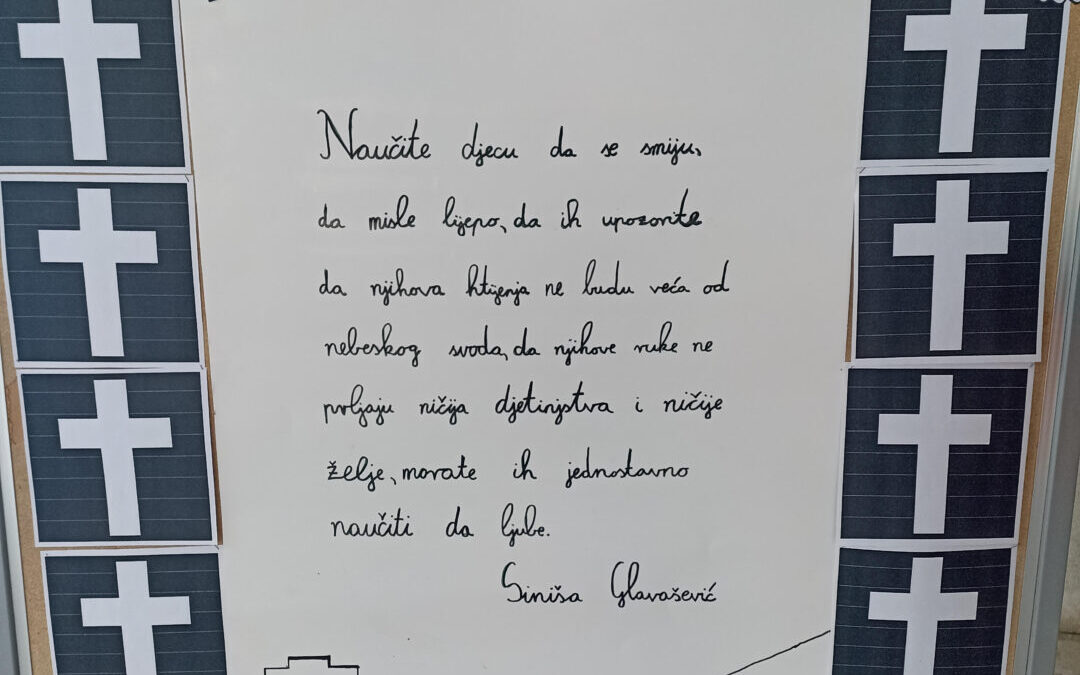 Naučite djecu da se smiju,
da misle lijepo, da ih upozorite
da njihova htijenja ne budu veća od
nebeskog svoda, da njihove ruke ne
prljaju ničija djetinjstva i ničije
želje, morate ih jednostavno
naučiti da ljube.
Siniša Glavašević